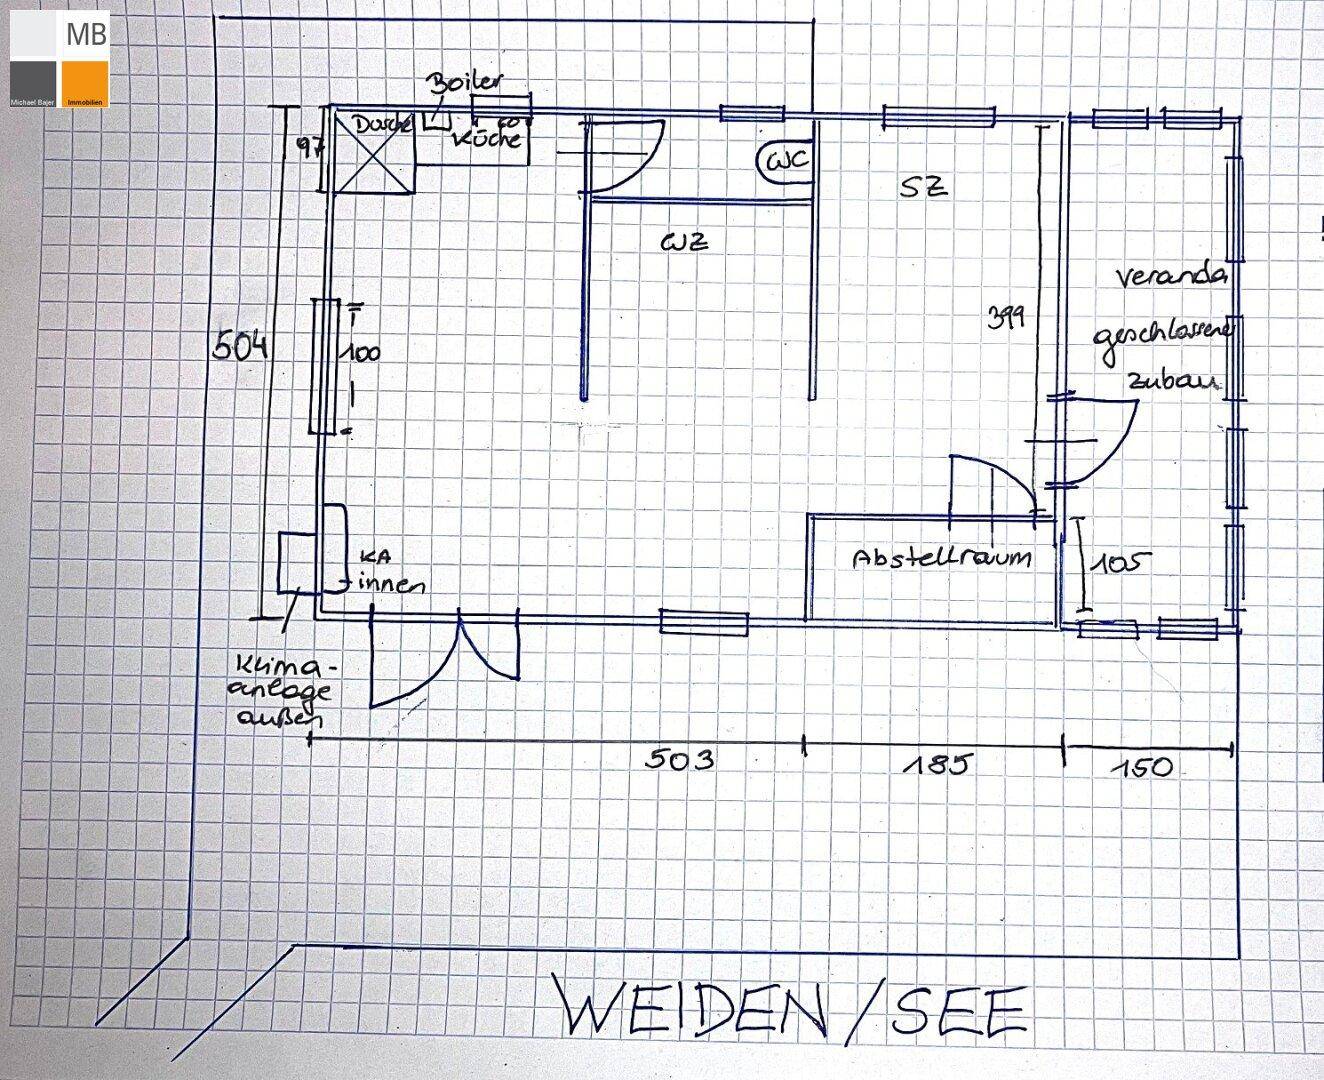 MB
Michael Bajer
Immobilien
Boiler
Dusche
60
Küche
97
WC
SZ
WZ
Veranda
399
geschlossener
504
100
Zubau
KA
innen
Abstellraum
105
Klima-
anlage
außen
503
185
150
WEIDEN/SEE